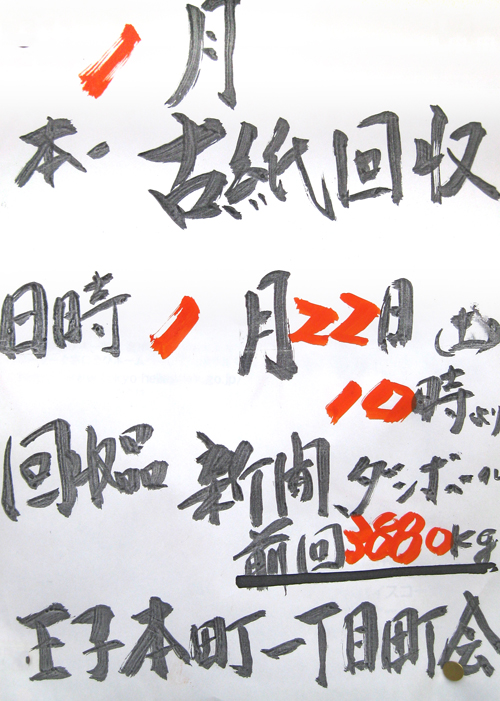 1月
本・古紙回収
日時 1月22日 土
10時より
回収品 新聞 ダンボール
前回3880kg
王子本町一丁目町会